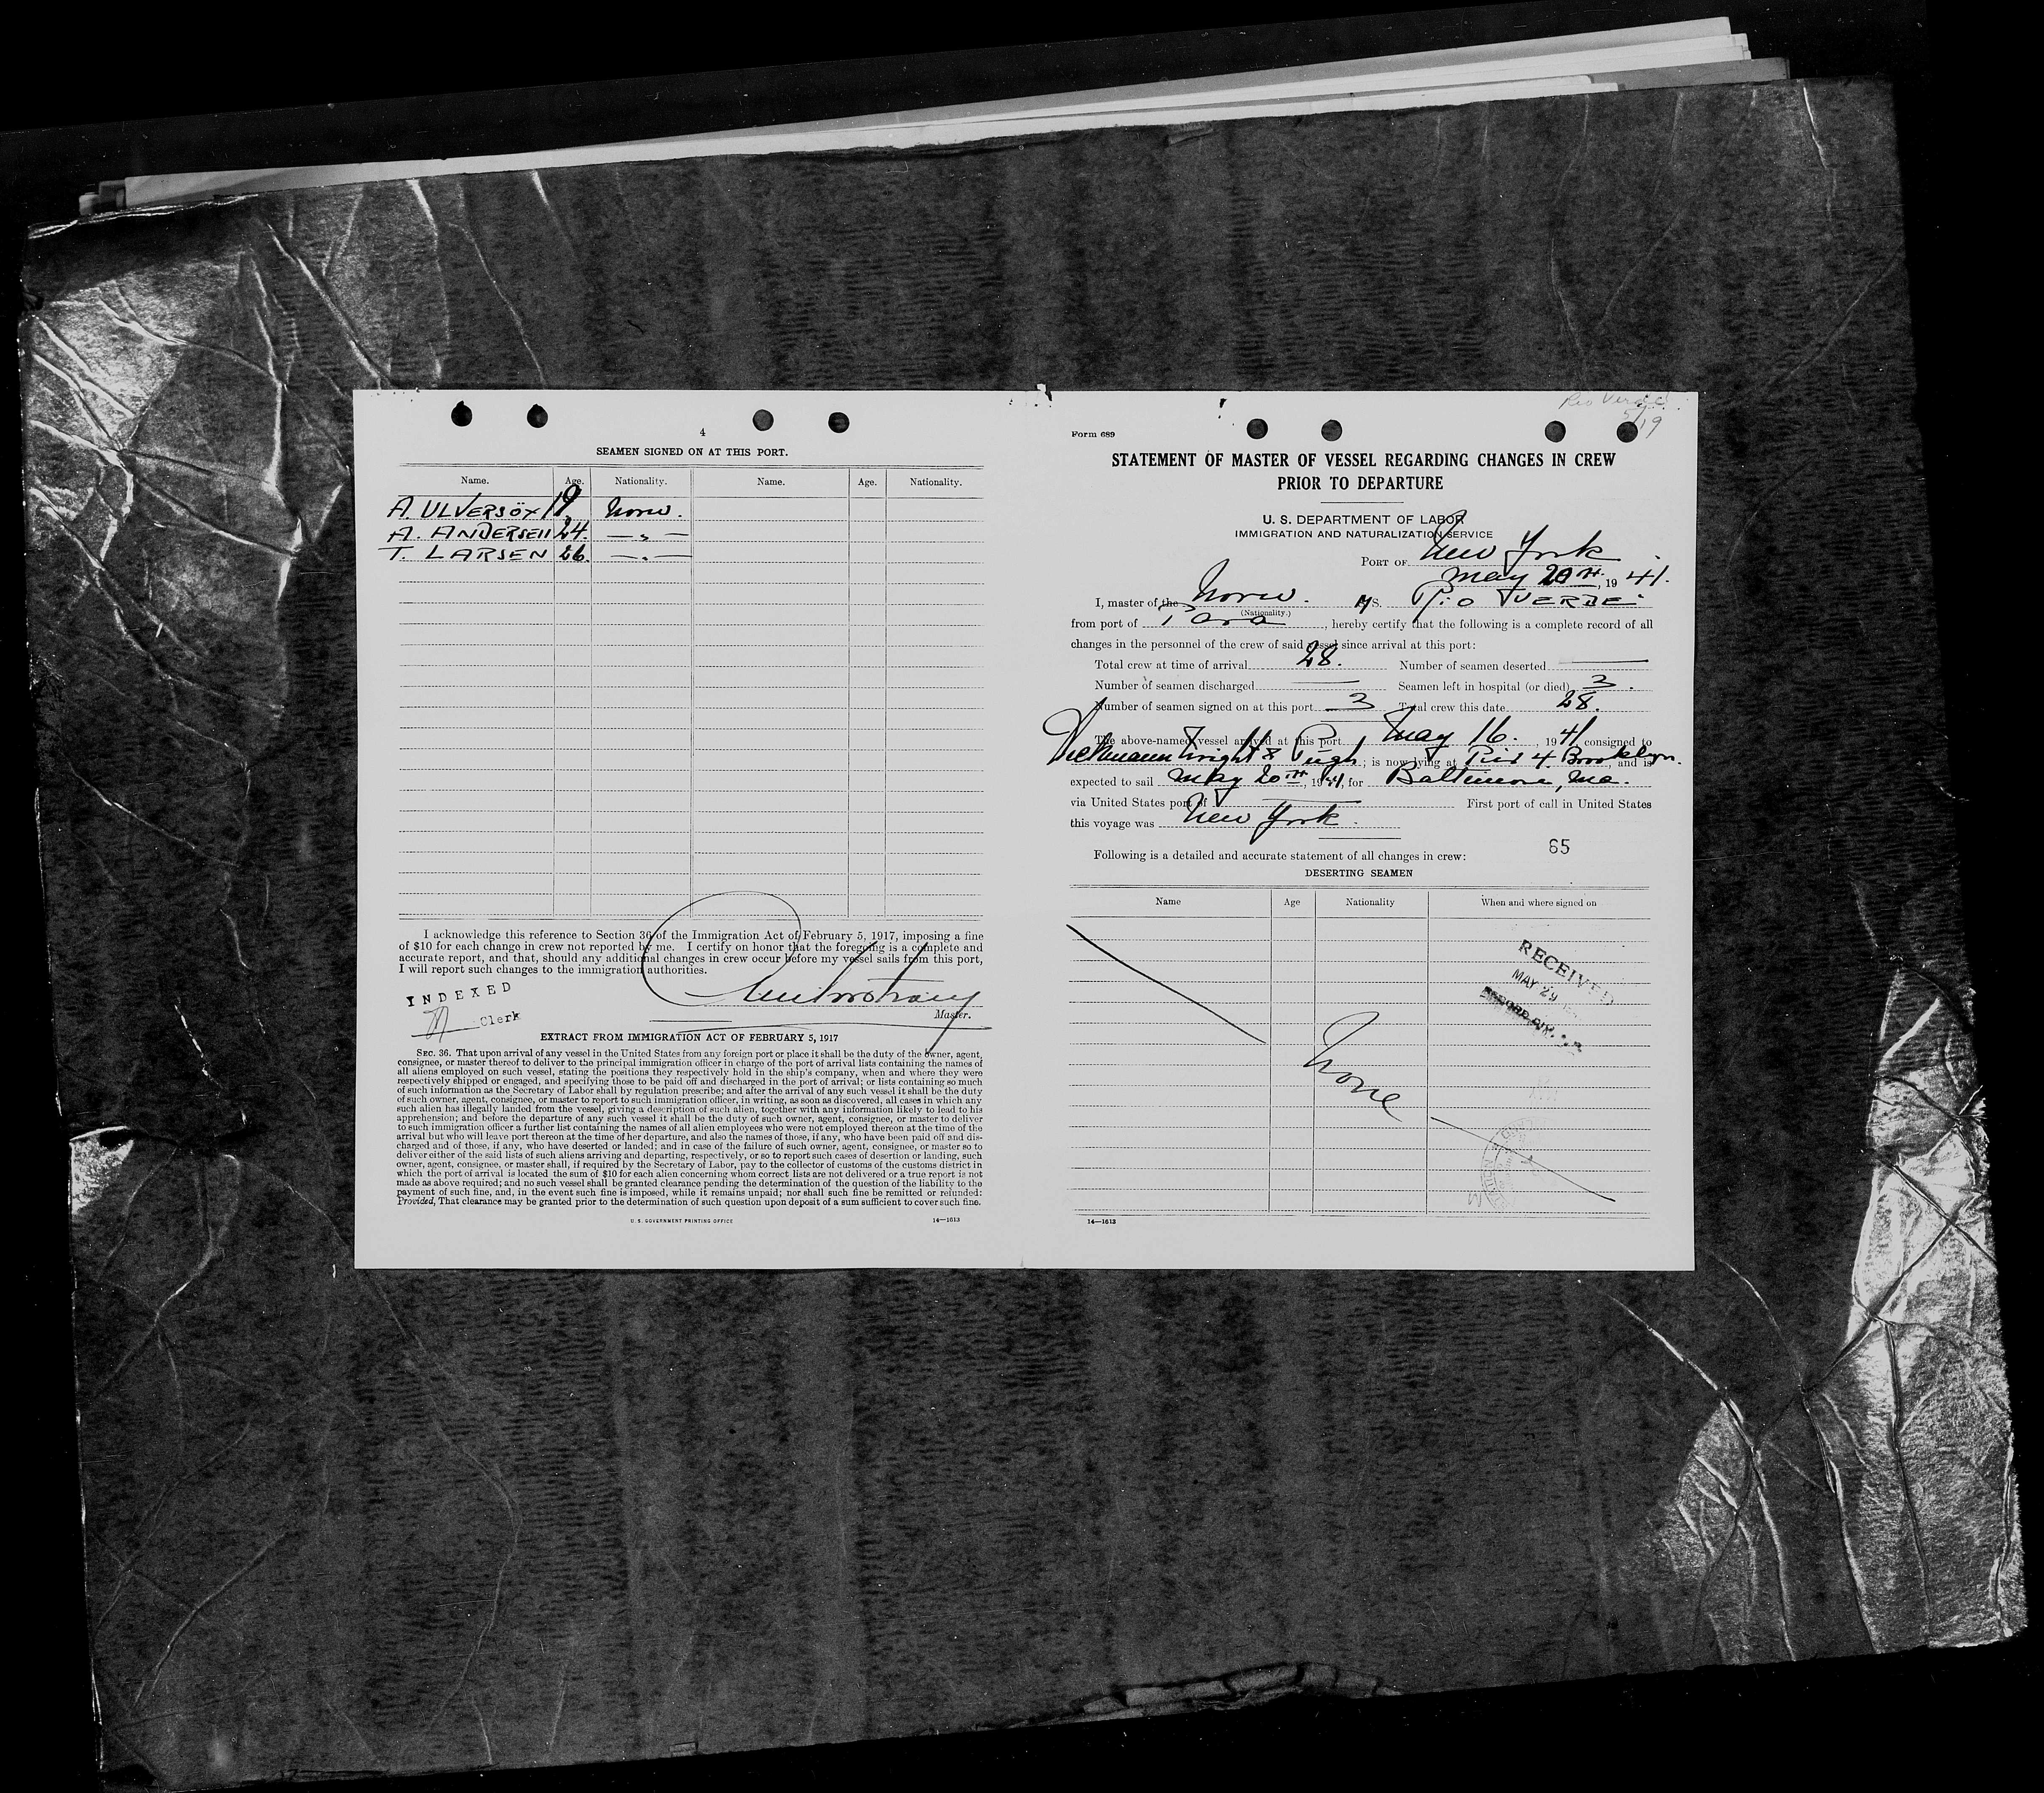 4
SEAMEN SIGNED ON AT THIS PORT.
Name. Age. Nationality. Name. Age. Nationality.
A. ULVERSÖY 19 Norw.
A. ANDERSEN 24. — " —
T. LARSEN 26. — " —
I acknowledge this reference to Section 36 of the Immigration Act of February 5, 1917, imposing a fine
of $10 for each change in crew not reported by me. I certify on honor that the foregoing is a complete and
accurate report, and that, should any additional changes in crew occur before my vessel sails from this port,
I will report such changes to the immigration authorities.
INDEXED
Clerk
Master.
EXTRACT FROM IMMIGRATION ACT OF FEBRUARY 5, 1917
SEC. 36. That upon arrival of any vessel in the United States from any foreign port or place it shall be the duty of the owner, agent,
consignee, or master thereof to deliver to the principal immigration officer in charge of the port of arrival lists containing the names of
all aliens employed on such vessel, stating the positions they respectively hold in the ship's company, when and where they were
respectively shipped or engaged, and specifying those to be paid off and discharged in the port of arrival; or lists containing so much
of such information as the Secretary of Labor shall by regulation prescribe; and after the arrival of any such vessel it shall be the duty
of such owner, agent, consignee, or master to report to such immigration officer, in writing, as soon as discovered, all cases in which any
such alien has illegally landed from the vessel, giving a description of such alien, together with any information likely to lead to his
apprehension; and before the departure of any such vessel it shall be the duty of such owner, agent, consignee, or master to deliver
to such immigration officer a further list containing the names of all alien employees who were not employed thereon at the time of the
arrival but who will leave port thereon at the time of her departure, and also the names of those, if any, who have been paid off and dis-
charged and of those, if any, who have deserted or landed; and in case of the failure of such owner, agent, consignee, or master so to
deliver either of the said lists of such aliens arriving and departing, respectively, or so to report such cases of desertion or landing, such
owner, agent, consignee, or master shall, if required by the Secretary of Labor, pay to the collector of customs of the customs district in
which the port of arrival is located the sum of $10 for each alien concerning whom correct lists are not delivered or a true report is not
made as above required; and no such vessel shall be granted clearance pending the determination of the question of the liability to the
payment of such fine, and, in the event such fine is imposed, while it remains unpaid; nor shall such fine be remitted or refunded:
Provided, That clearance may be granted prior to the determination of such question upon deposit of a sum sufficient to cover such fine.
U. S. GOVERNMENT PRINTING OFFICE 14—1613
Rio Verde
5/19
Form 689
STATEMENT OF MASTER OF VESSEL REGARDING CHANGES IN CREW
PRIOR TO DEPARTURE
U. S. DEPARTMENT OF LABOR
IMMIGRATION AND NATURALIZATION SERVICE
PORT OF New York
May 20TH, 19 41.
I, master of the Norw. M/S. RiO VERDE
(Nationality.)
from port of Para, hereby certify that the following is a complete record of all
changes in the personnel of the crew of said vessel since arrival at this port:
Total crew at time of arrival 28. Number of seamen deserted —
Number of seamen discharged — Seamen left in hospital (or died) 3.
Number of seamen signed on at this port 3 Total crew this date 28.
The above-named vessel arrived at this port May 16., 19 41, consigned to
Wright & Pugh; is now lying at Pier 4 Brooklyn, and is
expected to sail May 20TH, 1941, for Baltimore, Md.
via United States port of — First port of call in United States
this voyage was New York.
65
Following is a detailed and accurate statement of all changes in crew:
DESERTING SEAMEN
Name Age Nationality When and where signed on
RECEIVED
MAY 29
None
14—1613